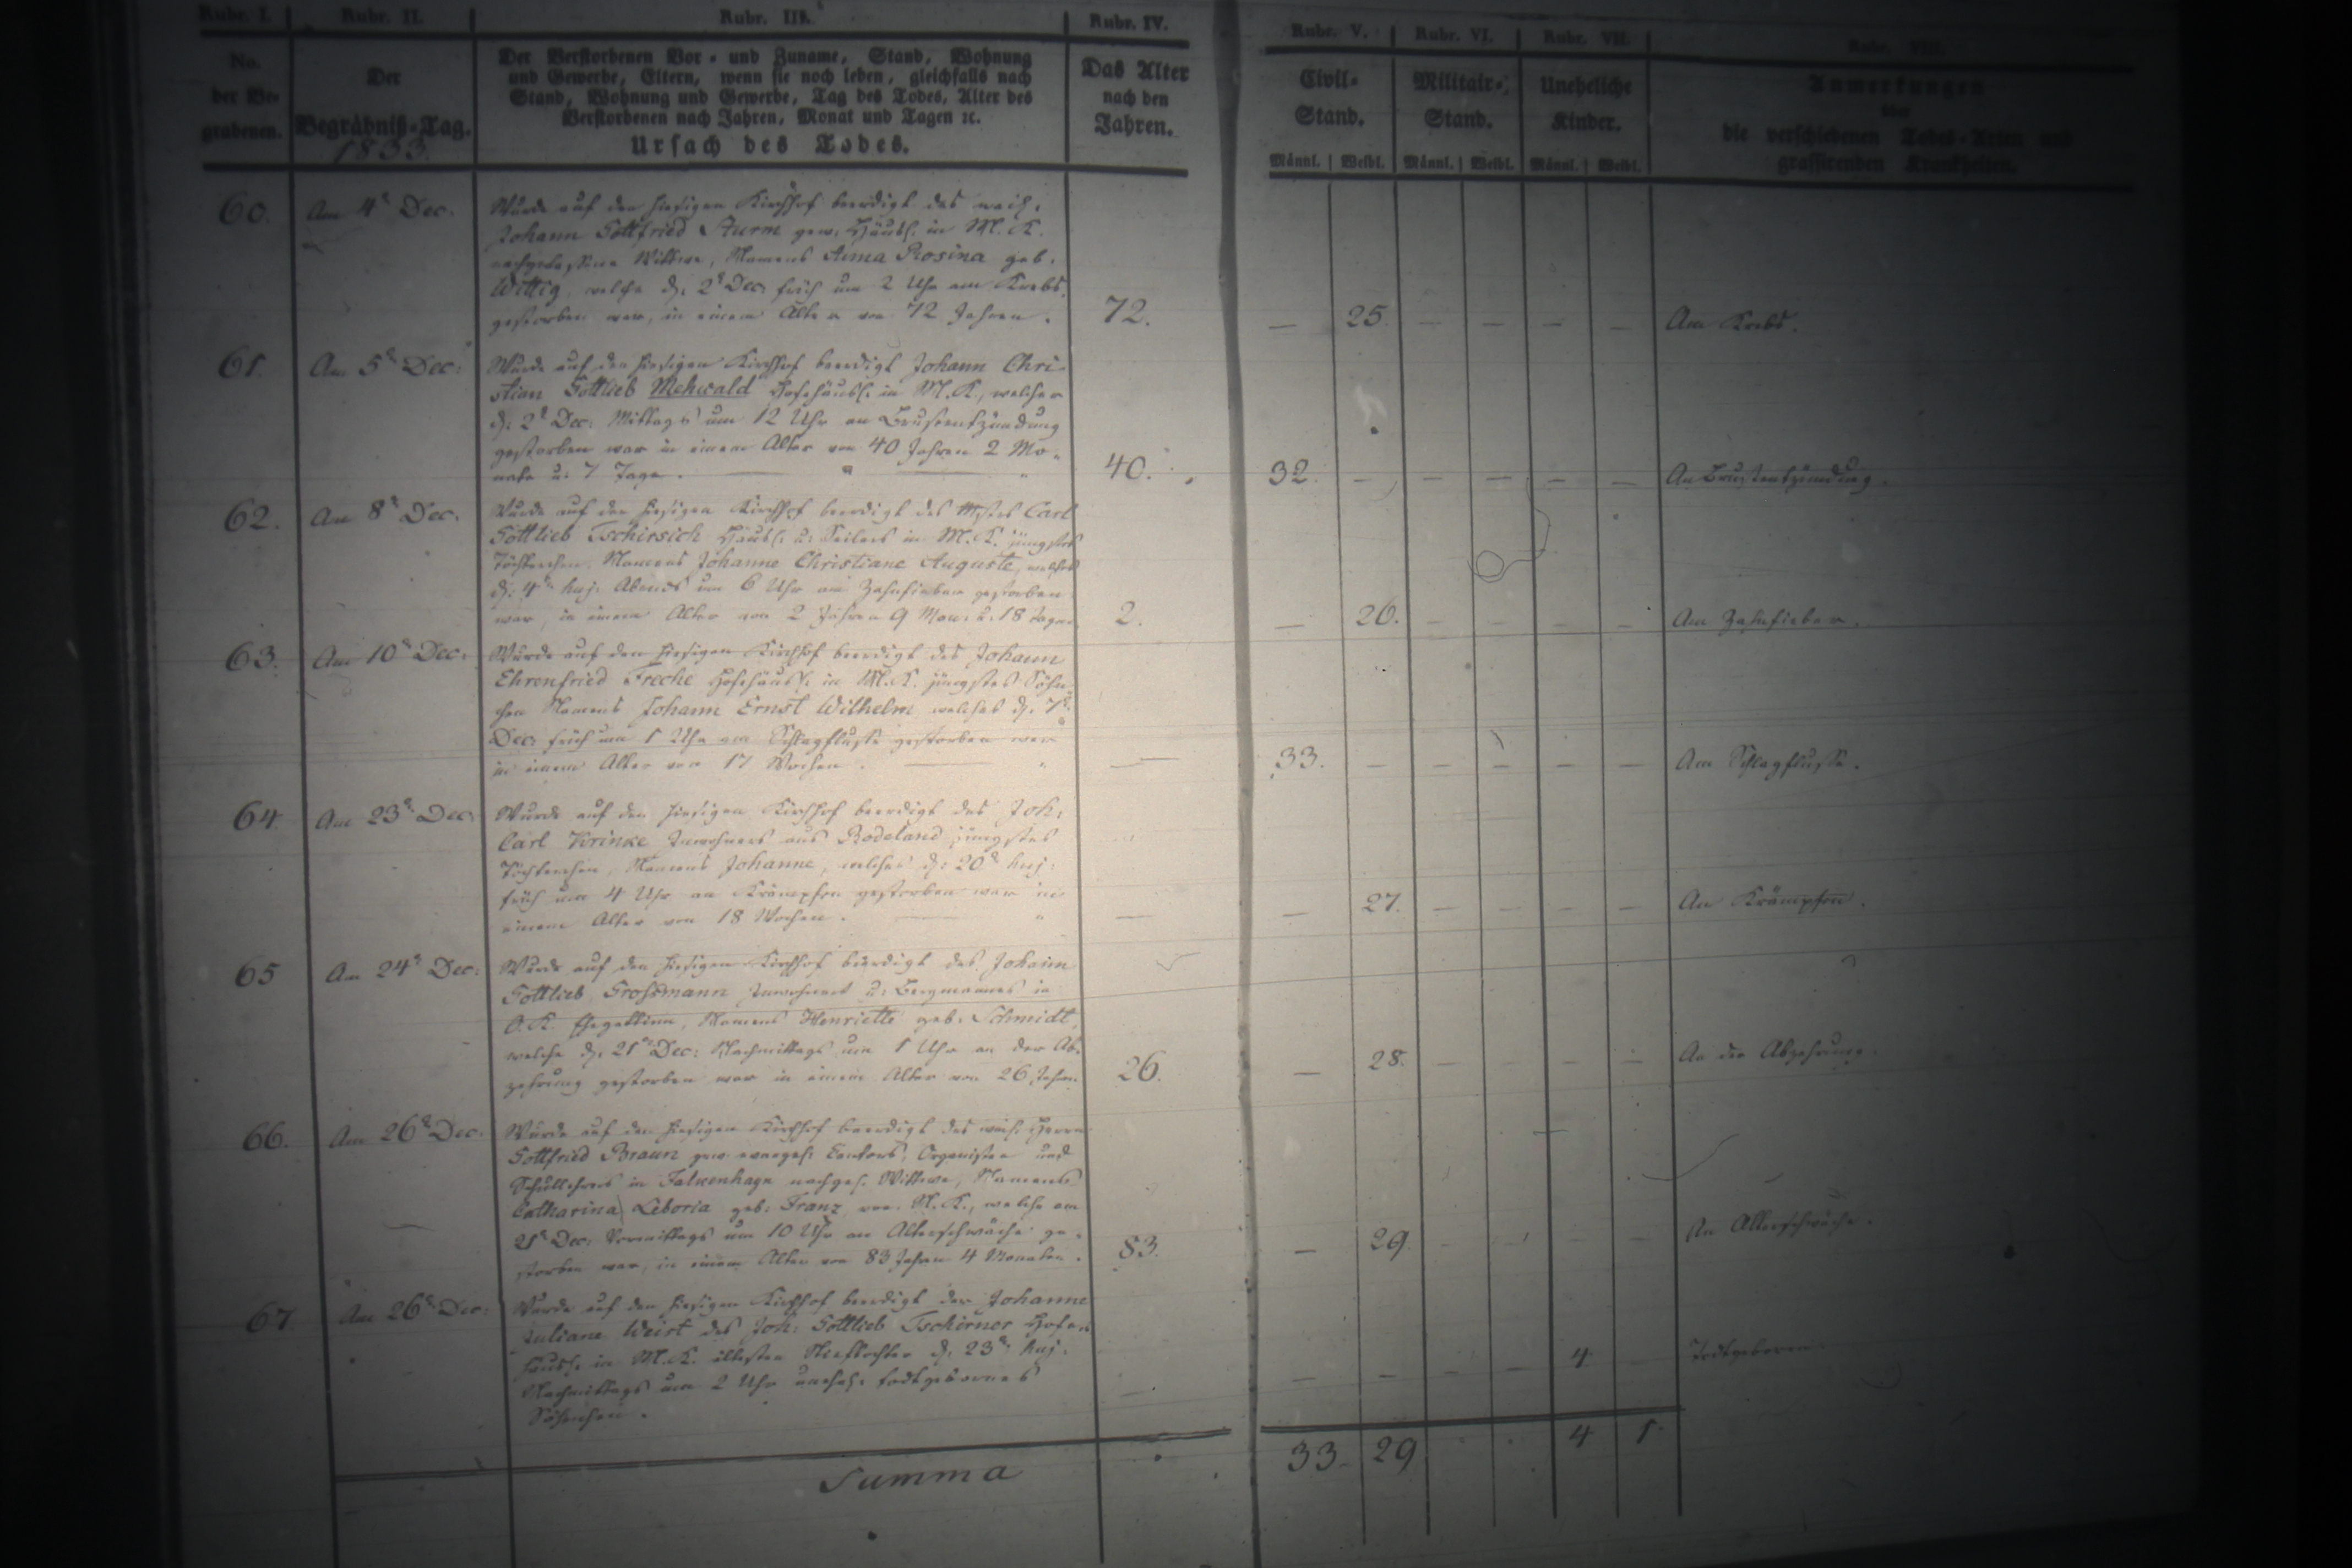 Rubr. I. Rubr. II. Rubr. III. Rubr. IV. Rubr. V. Rubr. VI. Rubr. VII. Rubr. VIII.
No. der Be-grabenen.
Der Begräbniß-Tag.
1833.
Der Verstorbenen Vor- und Zuname, Stand, Wohnung
und Gewerbe, Eltern, wenn sie noch leben, gleichfalls nach
Stand, Wohnung und Gewerbe, Tag des Todes, Alter des
Verstorbenen nach Jahren, Monat und Tagen ꝛc.
Ursach des Todes.
Das Alter
nach den
Jahren.
Civil-Stand.
Militair-Stand.
Uneheliche Kinder.
Anmerkungen
über
die verschiedenen Todes-Arten und
grassirenden Krankheiten.
Männl. Weibl. Männl. Weibl. Männl. Weibl.
60. Am 4t Dec. Wurde auf den hiesigen Kirchhof beerdigt des weil.
Johann Gottfried Sturm gew. Häusl. in M. K.
nachgelassene Wittwe, Namens Anna Rosina geb.
Wittig, welche d. 2t Dec. früh um 2 Uhr am Krebs
gestorben war, in einem Alter von 72 Jahren. 72. — 25. — — — — Am Krebs.
61. Am 5t Dec: Wurde auf den hiesigen Kirchhof beerdigt Johann Chri-
stian Gottlieb Mehwald Hofehäusl. in M. K., welcher
d. 2t Dec: Mittags um 12 Uhr an Brustentzündung
gestorben war in einem Alter von 40 Jahren 2 Mo-
nate u: 7 Tage. 40. 32. — — — — — An Brustentzündung.
62. Am 8t Dec. Wurde auf den hiesigen Kirchhof beerdigt des Mstrs Carl
Gottlieb Tschirsich Häusl. u: Seilers in M. K. jüngstes
Töchterchen, Namens Johanne Christiane Auguste, welches
d. 4t huj. Abends um 6 Uhr am Zahnfieber gestorben
war, in einem Alter von 2 Jahren 9 Mon. u. 18 Tagen 2. — 26. — — — — Am Zahnfieber.
63. Am 10t Dec. Wurde auf den hiesigen Kirchhof beerdigt des Johann
Ehrenfried Freche Hofehäusl. in M. K. jüngstes Söhn-
chen Namens Johann Ernst Wilhelm welches d. 7t
Dec: früh um 1 Uhr am Schlagflusse gestorben war
in einem Alter von 17 Wochen. — 33. — — — — — Am Schlagflusse.
64. Am 23t Dec. Wurde auf den hiesigen Kirchhof beerdigt des Joh:
Carl Krinke Inwohners aus Rodeland jüngstes
Töchterchen, Namens Johanne, welches d: 20t huj:
früh um 4 Uhr an Krämpfen gestorben war in
einem Alter von 18 Wochen. — — 27. — — — — An Krämpfen.
65 Am 24t Dec: Wurde auf den hiesigen Kirchhof beerdigt des Johann
Gottlieb Grossmann Inwohners u: Bergmannes in
O. K. Ehegattinn, Namens Henriette geb. Schmidt,
welche d. 21t Dec: Nachmittags um 1 Uhr an der Ab-
zehrung gestorben war in einem Alter von 26 Jahren 26. — 28. — — — — An der Abzehrung.
66. Am 26t Dec. Wurde auf den hiesigen Kirchhof beerdigt des weil. Herrn
Gottfried Braun gew. evangel. Cantors, Organisten und
Schullehrers in Falkenhayn nachgel. Wittwe, Namens
Catharina Leboria geb: Franz von M. K., welche am
21t Dec: Vormittags um 10 Uhr an Alterschwäche ge-
storben war, in einem Alter von 83 Jahren 4 Monaten. 83. — 29. — — — — An Alterschwäche.
67. Am 26t Dec: Wurde auf den hiesigen Kirchhof beerdigt der Johanne
Juliane Weist des Joh: Gottlieb Tschirner Hofe-
häusl. in M. K. ältesten Stieftochter d. 23t huj.
Nachmittags um 2 Uhr unehel. todtgebornes
Söhnchen. — — — — — 4. — Todtgeboren.
Summa 33. 29 4 1.